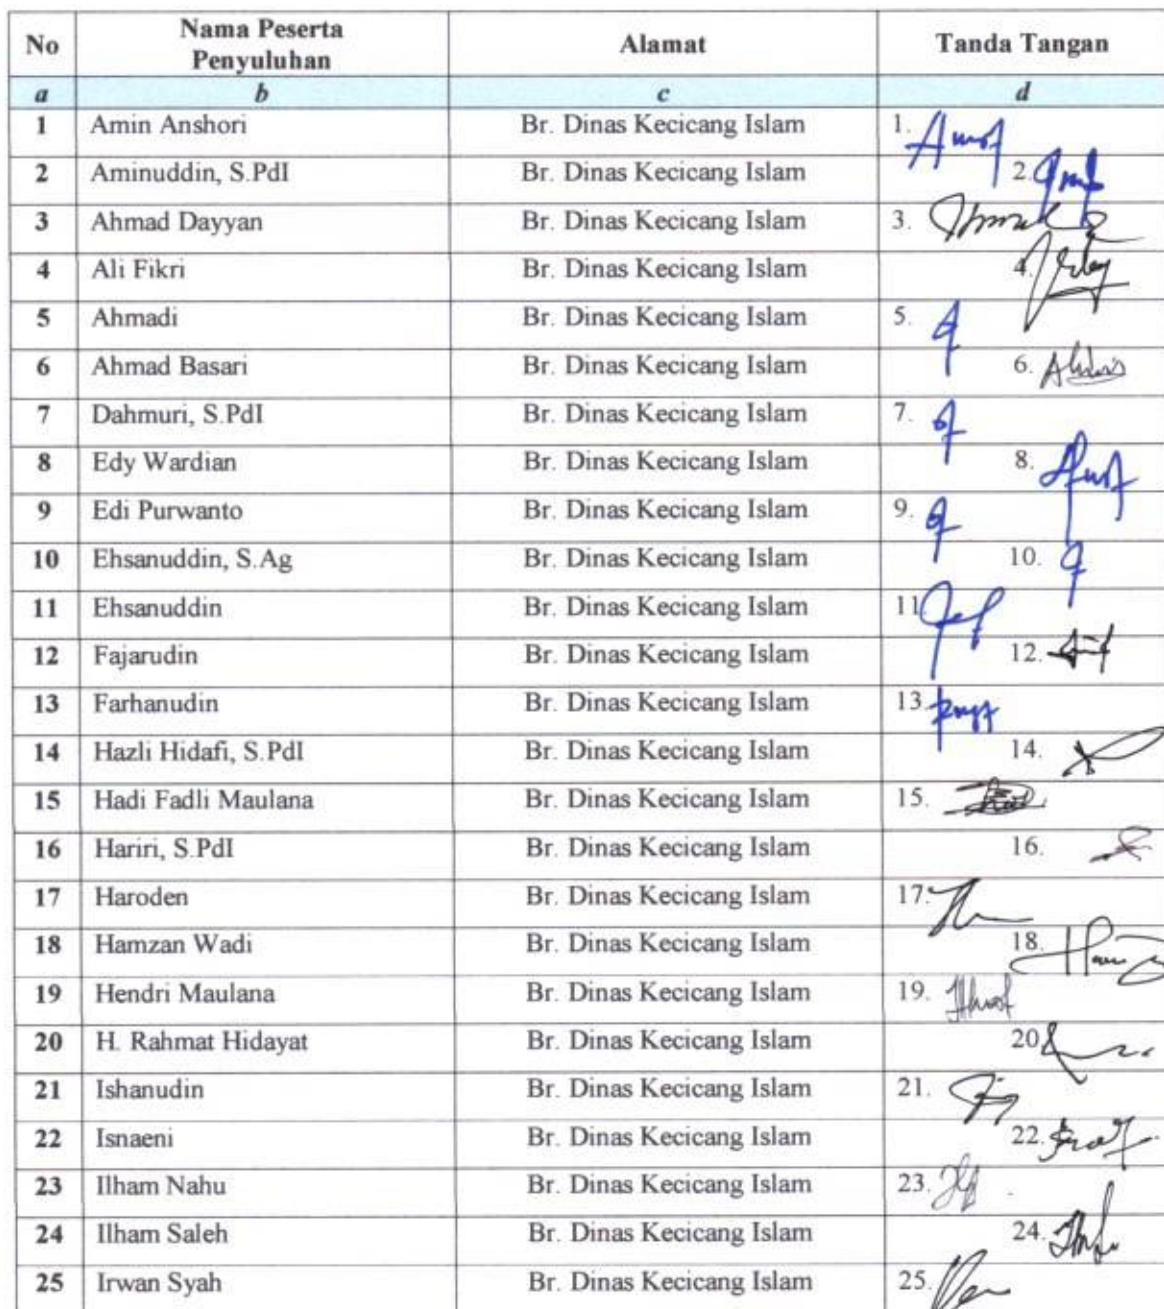 No Nama Peserta Penyuluhan Alamat Tanda Tangan
a b c d
1 Amin Anshori Br. Dinas Kecicang Islam 1.
2 Aminuddin, S.PdI Br. Dinas Kecicang Islam 2.
3 Ahmad Dayyan Br. Dinas Kecicang Islam 3.
4 Ali Fikri Br. Dinas Kecicang Islam 4.
5 Ahmadi Br. Dinas Kecicang Islam 5.
6 Ahmad Basari Br. Dinas Kecicang Islam 6.
7 Dahmuri, S.PdI Br. Dinas Kecicang Islam 7.
8 Edy Wardian Br. Dinas Kecicang Islam 8.
9 Edi Purwanto Br. Dinas Kecicang Islam 9.
10 Ehsanuddin, S.Ag Br. Dinas Kecicang Islam 10.
11 Ehsanuddin Br. Dinas Kecicang Islam 11.
12 Fajarudin Br. Dinas Kecicang Islam 12.
13 Farhanudin Br. Dinas Kecicang Islam 13.
14 Hazli Hidafi, S.PdI Br. Dinas Kecicang Islam 14.
15 Hadi Fadli Maulana Br. Dinas Kecicang Islam 15.
16 Hariri, S.PdI Br. Dinas Kecicang Islam 16.
17 Haroden Br. Dinas Kecicang Islam 17.
18 Hamzan Wadi Br. Dinas Kecicang Islam 18.
19 Hendri Maulana Br. Dinas Kecicang Islam 19.
20 H. Rahmat Hidayat Br. Dinas Kecicang Islam 20
21 Ishanudin Br. Dinas Kecicang Islam 21.
22 Isnaeni Br. Dinas Kecicang Islam 22.
23 Ilham Nahu Br. Dinas Kecicang Islam 23.
24 Ilham Saleh Br. Dinas Kecicang Islam 24.
25 Irwan Syah Br. Dinas Kecicang Islam 25.